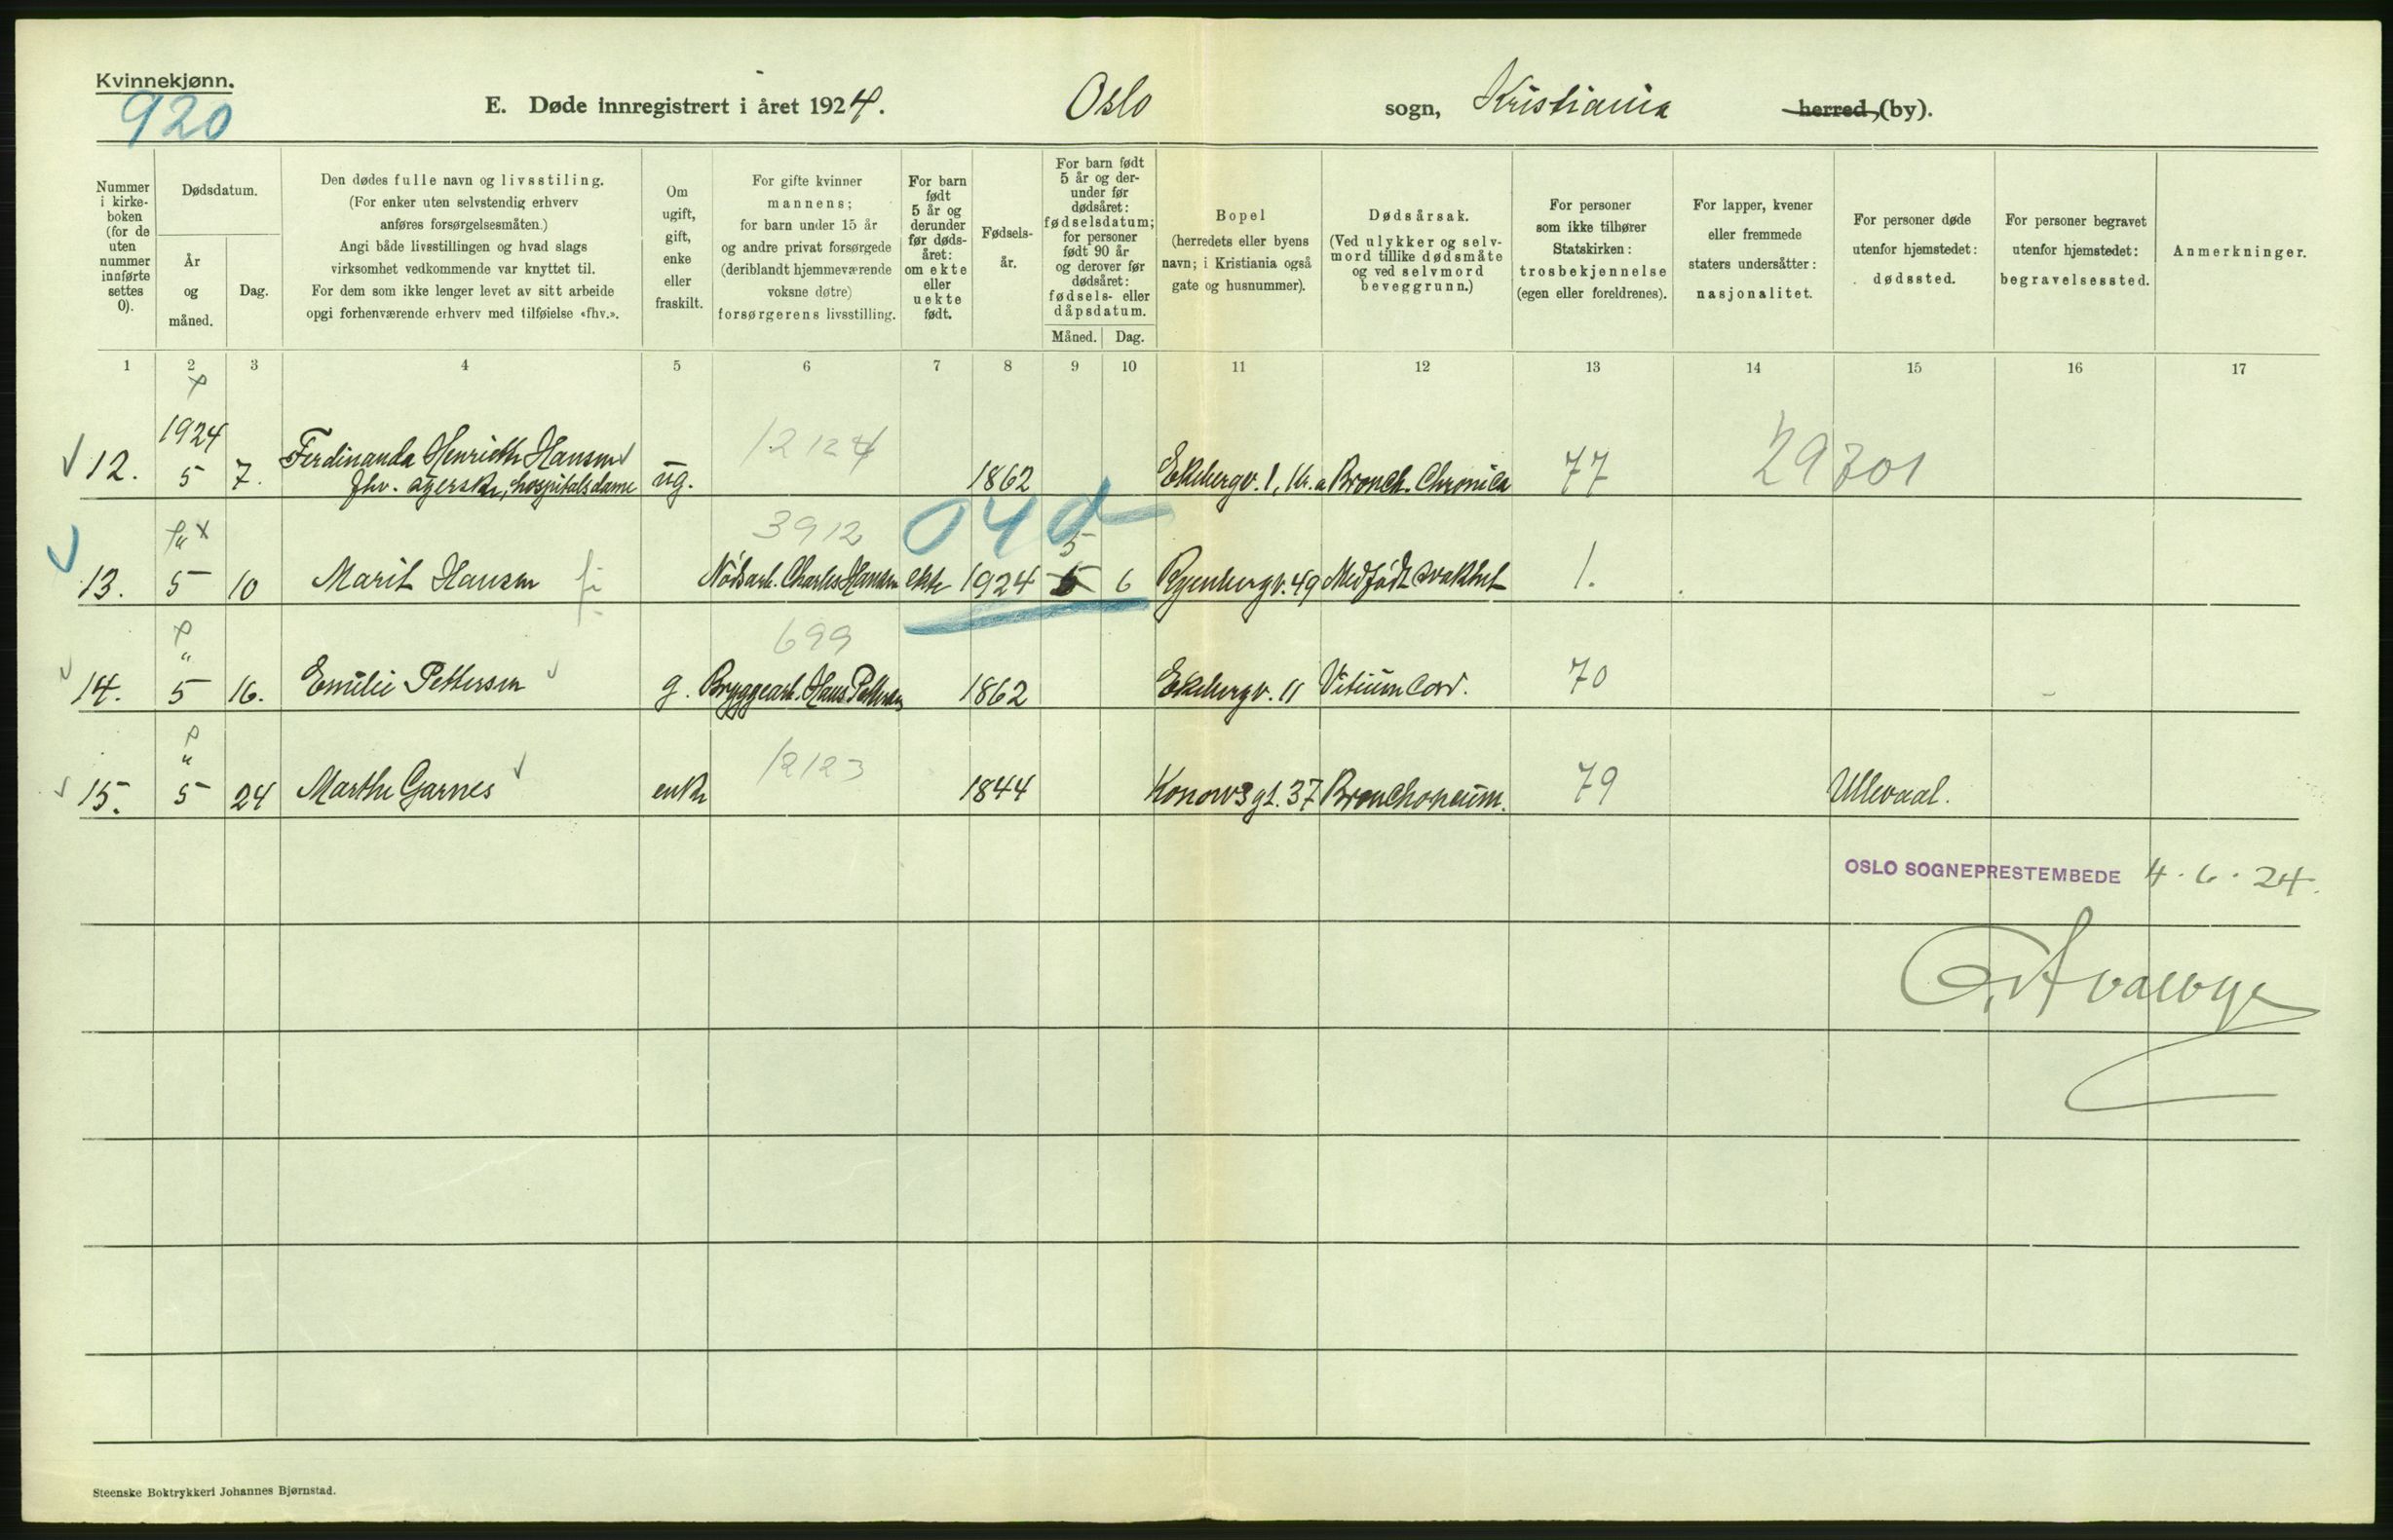 Kvinnekjønn.
920
E. Døde innregistrert i året 1924. Oslo sogn, Kristiania herred, (by).
Nummer i kirkeboken (for de uten nummer innførte settes 0).
Dødsdatum.
År og måned.
Dag.
Den dødes fulle navn og livsstiling.
(For enker uten selvstendig erhverv
anføres forsørgelsesmåten.)
Angi både livsstillingen og hvad slags
virksomhet vedkommende var knyttet til.
For dem som ikke lenger levet av sitt arbeide
opgi forhenværende erhverv med tilføielse «fhv.».
Om ugift, gift, enke eller fraskilt.
For gifte kvinner
mannens;
for barn under 15 år
og andre privat forsørgede
(deriblandt hjemmeværende
voksne døtre)
forsørgerens livsstilling.
For barn født 5 år og derunder før dødsåret: om ekte eller uekte født.
Fødselsår.
For barn født
5 år og derunder før
dødsåret:
fødselsdatum;
for personer
født 90 år
og derover før
dødsåret:
fødsels- eller
dåpsdatum.
Måned. Dag.
Bopel
(herredets eller byens
navn; i Kristiania også
gate og husnummer).
Dødsårsak.
(Ved ulykker og selvmord tillike dødsmåte
og ved selvmord
beveggrunn.)
For personer
som ikke tilhører
Statskirken:
trosbekjennelse
(egen eller foreldrenes).
For lapper, kvener
eller fremmede
staters undersåtter:
nasjonalitet.
For personer døde
utenfor hjemstedet:
dødssted.
For personer begravet
utenfor hjemstedet:
begravelsessted.
Anmerkninger.
1 2 3 4 5 6 7 8 9 10 11 12 13 14 15 16 17
1924 12124
12. 5 7. Ferdinanda Henriette Hansen ug. 1862 Ekebergv. 1, Kr.a Bronch. Chronica 77 29701
fhv. syerske, hospitalsdame
3912 04d
13. " 5 10 Marit Hansen Nødsarb. Charles Hansen ekte 1924 5 6 Ryenbergv. 49 Medfødt svakhet 1.
699
14. " 5 16. Emilie Pettersen g. Bryggearb. Hans Pettersen 1862 Ekebergv. 11 Vitium Cord. 70
12123
15. " 5 24 Marthe Garnes enke 1844 Konowsgt. 37 Bronchopneum. 79 Ullevaal.
OSLO SOGNEPRESTEMBEDE 4.6.24.
Steenske Boktrykkeri Johannes Bjørnstad.